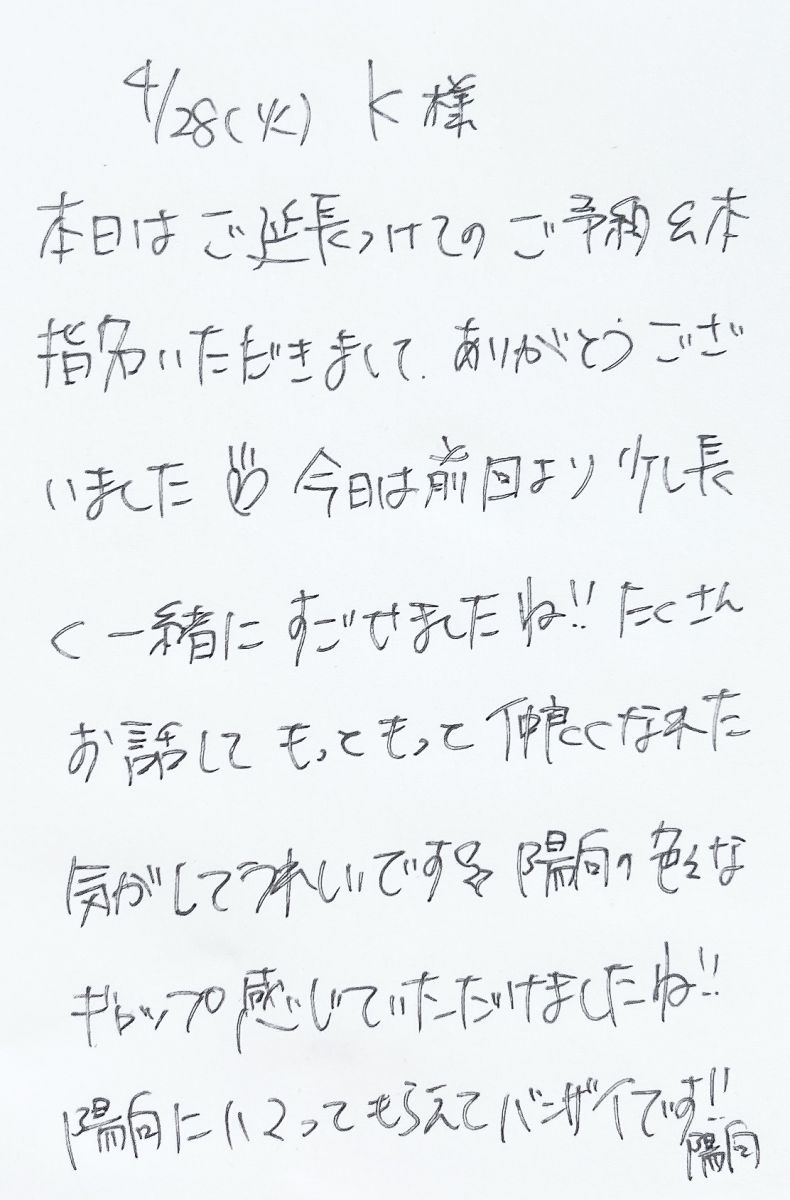 4/28(火) K様
本日はご延長つけてのご予約&本
指名いただきまして、ありがとうござ
いました 今日は前回より少し長
く一緒にすごせましたね!! たくさん
お話して もっともっと仲良くなれた
気がしてうれしいです☆陽向の色々な
ギャップ感じていただけましたね!!
陽向にハマってもらえてバンザイです!!
陽向